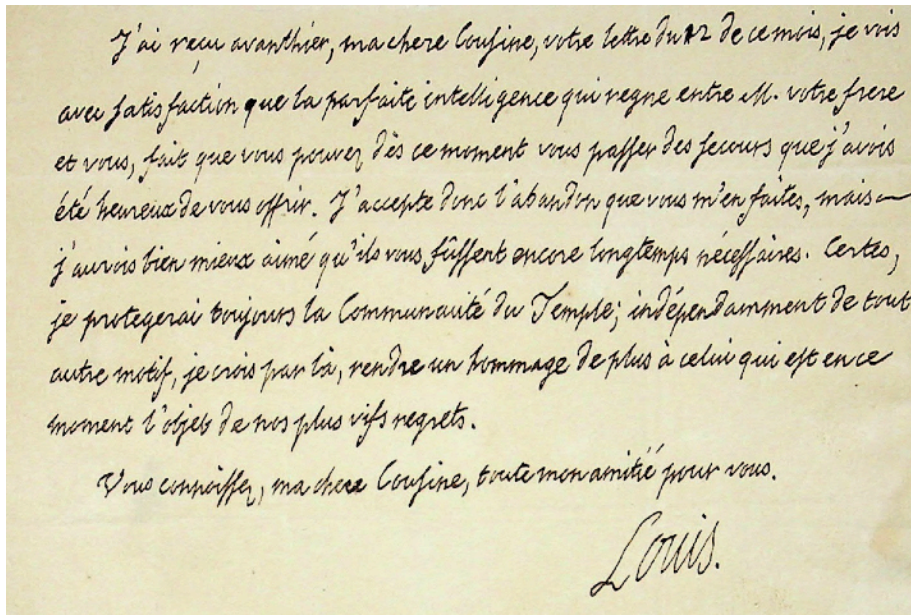 J'ai reçu avanthier, ma chere Cousine, votre lettre du 12 de ce mois, je vois
avec satisfaction que la parfaite intelligence qui regne entre M. votre frere
et vous, fait que vous pouvez dès ce moment vous passer des secours que j'avois
été heureux de vous offrir. J'accepte donc l'abandon que vous m'en faites, mais
j'aurois bien mieux aimé qu'ils vous fûssent encore longtemps nécessaires. Certes,
je protegerai toujours la Communauté du Temple; indépendamment de tout
autre motif, je crois par là, rendre un hommage de plus à celui qui est en ce
moment l'objet de nos plus vifs regrets.
Vous connoissez, ma chere Cousine, toute mon amitié pour vous.
Louis.